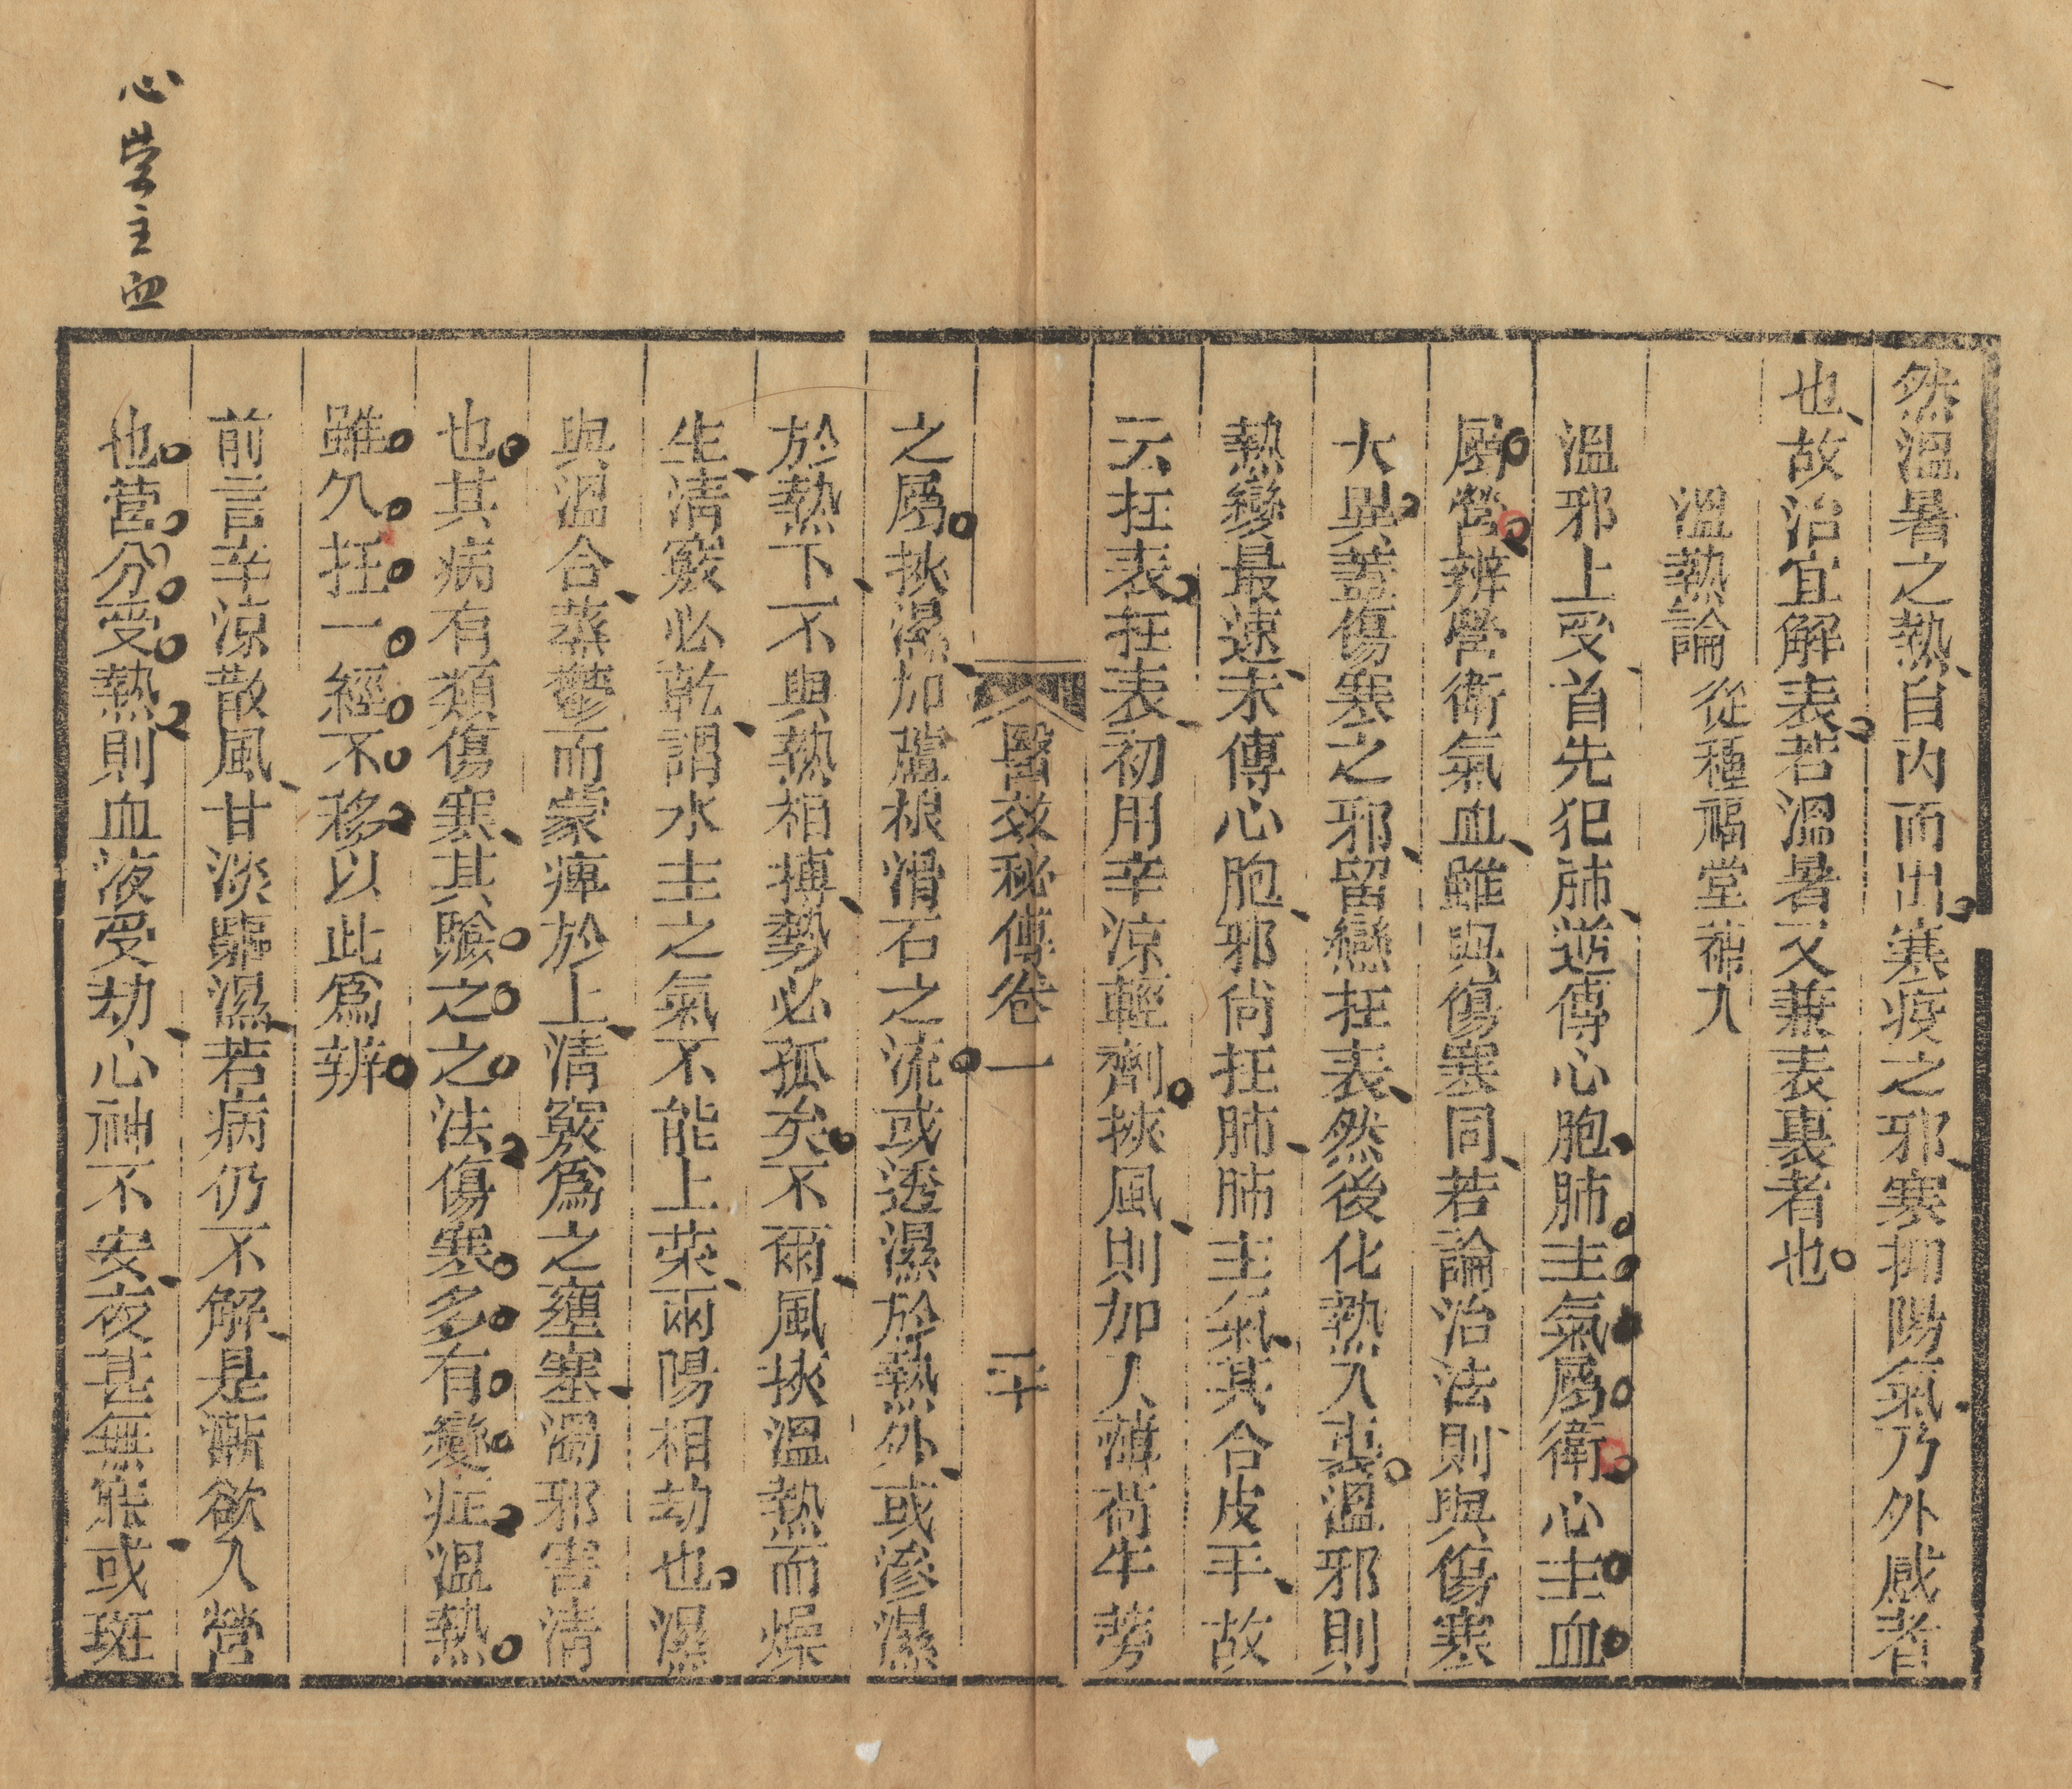 然溫暑之熱自內而出寒疫之邪寒抑陽氣乃外感者
也故治宜解表若溫暑又兼表裏者也
溫熱論從種福堂補入
溫邪上受首先犯肺逆傳心胞肺主氣屬衛心主血
屬營辨營衛氣血雖與傷寒同若論治法則與傷寒
大異蓋傷寒之邪留戀在表然後化熱入裏溫邪則
熱變最速未傳心胞邪尙在肺肺主氣其合皮毛故
云在表在表初用辛涼輕劑挾風則加入薄荷牛蒡
醫效秘傳卷一 二十
之屬挾濕加蘆根滑石之流或透濕於熱外或滲濕
於熱下不與熱相搏勢必孤矣不爾風挾溫熱而燥
生淸竅必乾謂水主之氣不能上榮兩陽相劫也濕
與溫合蒸鬱而蒙痺於上淸竅爲之壅塞濁邪害淸
也其病有類傷寒其驗之之法傷寒多有變症溫熱
雖久在一經不移以此爲辨
前言辛涼散風甘淡驅濕若病仍不解是漸欲入營
也營分受熱則血液受劫心神不安夜甚無寐或斑
心營主血